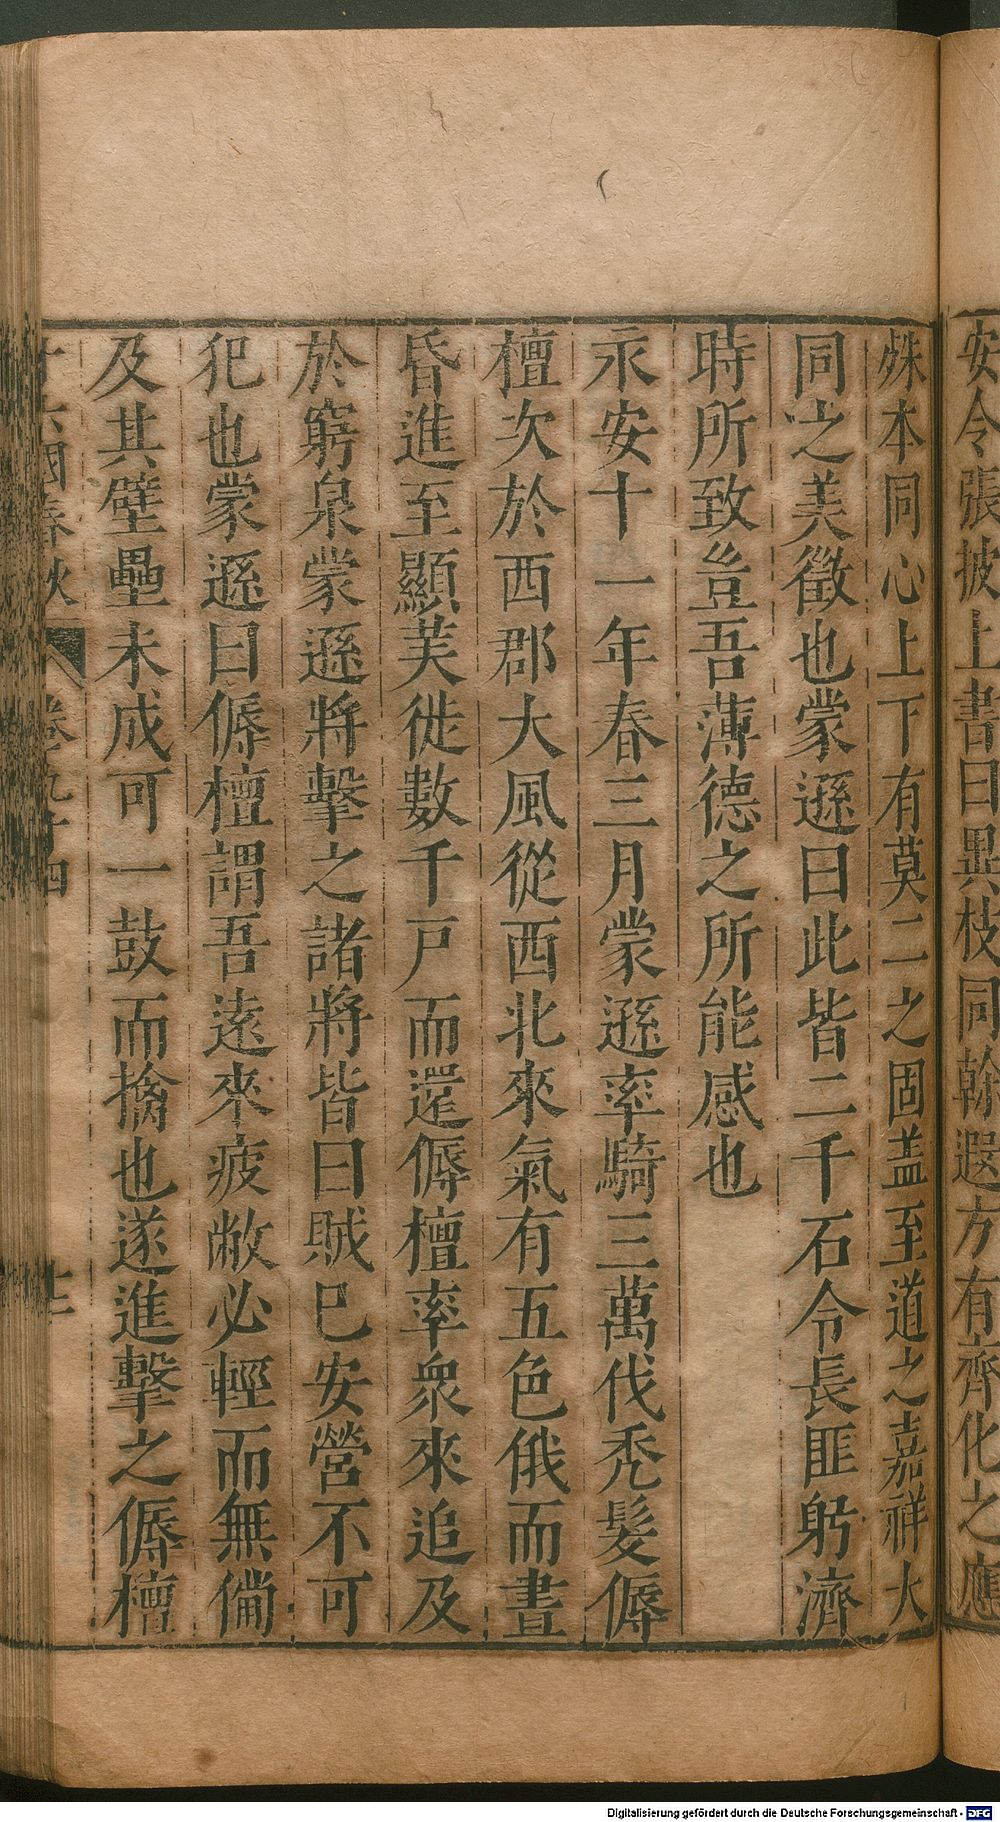 安令張披上書曰異枝同幹遐方有齊化之應
殊本同心上下有莫二之固盖至道之嘉祥大
同之美徵也蒙遜曰此皆二千石令長匪躬濟
時所致豈吾薄德之所能感也
永安十一年春三月蒙遜率騎三萬伐禿髮傉
檀次於西郡大風從西北來氣有五色俄而晝
昏進至顯美徙數千戸而還傉檀率衆來追及
於窮泉蒙遜將擊之諸將皆曰賊已安營不可
犯也蒙遜曰傉檀謂吾遠來疲敝必輕而無備
及其壁壘未成可一鼓而擒也遂進擊之傉檀
十六國春秋 卷九十四 十二
Digitalisierung gefördert durch die Deutsche Forschungsgemeinschaft - DFG